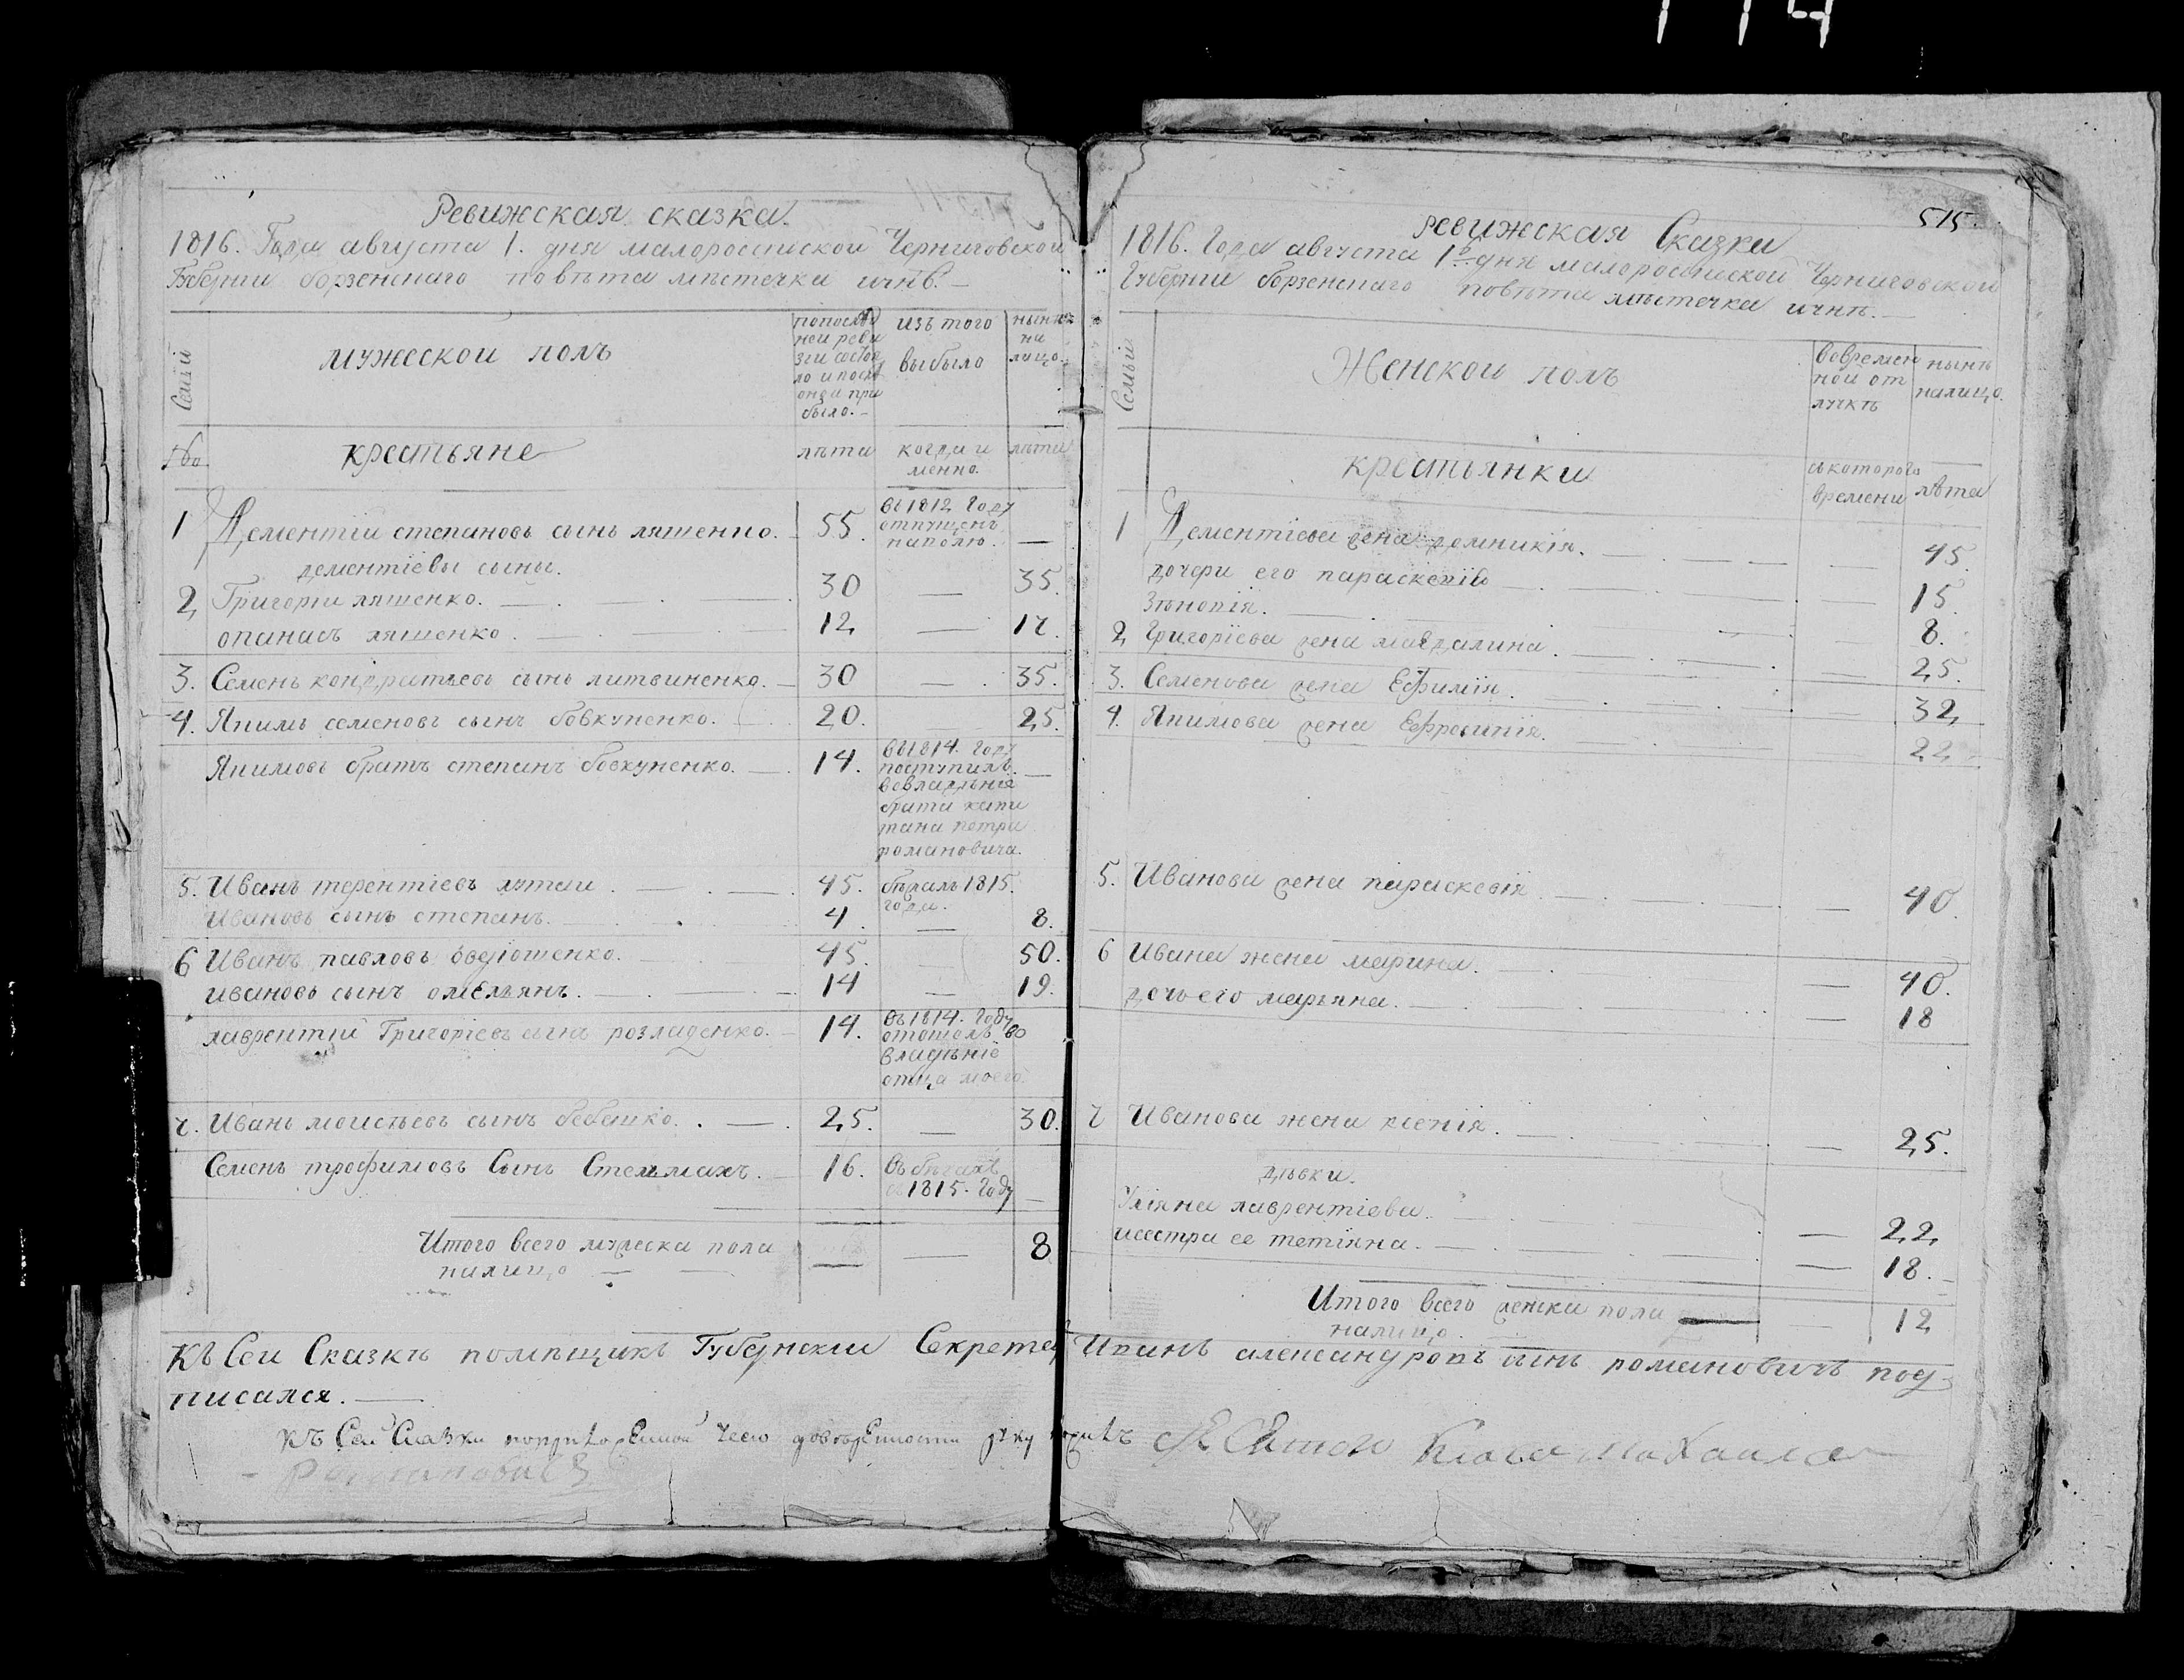 Ревижская сказка.
1816. Года августа 1. дня малоросийской Черниговской
Губернии борзенского повѣта мѣстечка ичнѣ. —
Семьи
мужескои полъ
попослѣд
неи реви
зги состоя
ло и посл
онаи при
было. —
изъ того
выбыло
нынѣ
на
лицо.
№
крестьяне
лѣта
когда и
менно.
лѣта
1 Дементіи степановъ сынъ ляшенко. 55. въ 1812 Году
отпущенъ
наполю. —
дементіевы сыны.
2 Григории ляшенко. 30 — 35.
опанасъ ляшенко. 12 — 17.
3. Семенъ кондратьевъ сынъ литвиненко. 30 — 35.
4. Якимъ семеновъ сынъ бовкуненко. 20. 25.
Якимовъ братъ степанъ бовкуненко. 14. въ 1814. Году
поступилъ —
вовладѣніе
брата капи
тана петра
романовича.
5. Иванъ терентіевъ лутаи. 45. бѣжалъ 1815.
года.
Ивановъ сынъ степанъ. 4. — 8.
6 Иванъ павловъ овдіошенко. 45. — 50.
ивановъ сынъ омельянъ. 14 — 19.
лаврентіи Григоріевъ сынъ розладенко. 14. въ 1814. Году
отошолъ во
владѣніе
отца моего
7. Иванъ моисѣевъ сынъ бебешко. 25. — 30.
Семенъ трофимовъ Сынъ Стельмахъ. 16. въ бѣгахъ
съ 1815. Году —
Итого всего мужеска пола — 8
налицо —
515.
ревижская Сказка
1816. Года августа 1го дня малоросийской Черниговской
Губернии борзенского повѣта мѣстечка ичнѣ. —
Семьи
Женскои полъ
вовремен
нои от
лучкѣ
нынѣ
налицо.
крестьянки
съкоторого
времени
лѣта
1 Дементіева жена домникія. — 45.
дочери его параскевія — 15.
Зѣновія. — 8.
2 Григоріева жена магдалина. — 25.
3. Семенова жена Ефимія. 32
4. Якимова жена Ефросинія. 22
5. Иванова жена параскевія — 40.
6 Ивана жена марина. — 40.
дочь его марьяна. — 18
7 Иванова жена ксенія. — 25.
дѣвки.
Уляна лаврентіева. — 22
исестра ее тетіяна. — 18.
Итого всего женска пола — 12
налицо.
Къ Сеи Сказкѣ помѣщикъ Губернскии Секретар Иванъ александровъ сынъ романовичъ под
писался. —
Къ Сей Сказки
Романовичъ